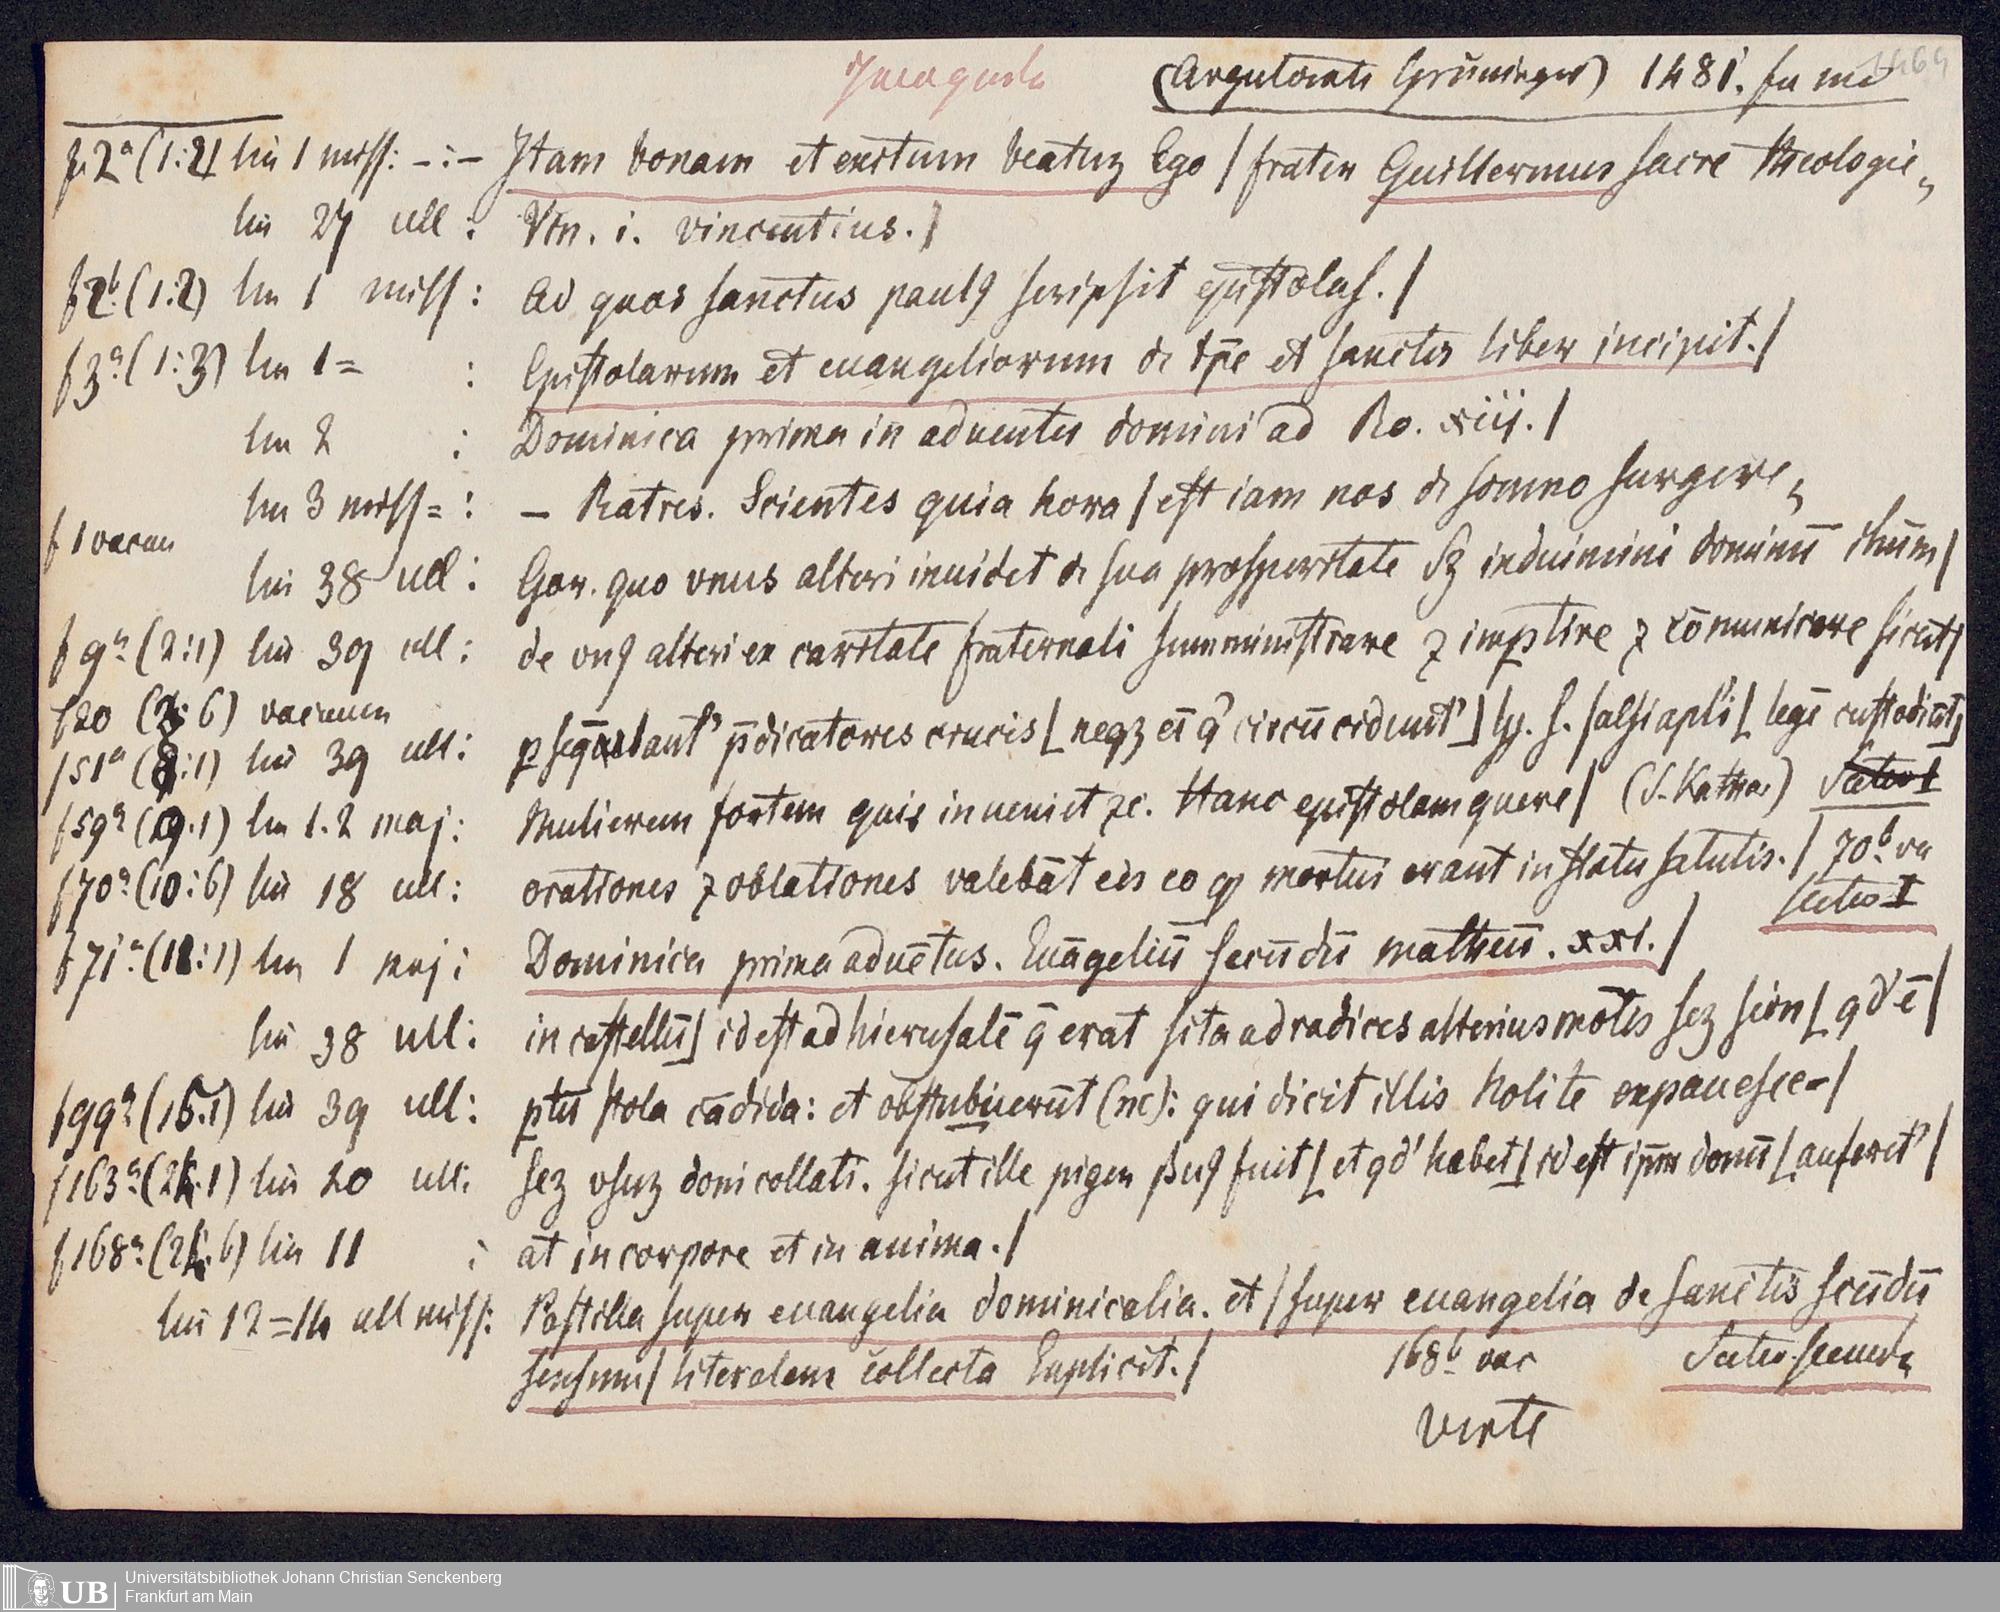 (Argentorati Grüninger) 1481. fa mo
f. 2ᵃ (1:2) lin 1 miss: -:- Itam bonam et exitum beatuz Ego / frater Guillermus sacre theologie,
lin 27 ull: Vin. i. vincentius./
f 2ᵇ (1.2) lin 1 miss: Ad quos sanctus paulꝯ scripsit epistolas./
f 3ᵃ (1:3) lin 1= : Epistolarum et euangeliorum de tp̄e et sanctis liber incipit./
lin 2 : Dominica prima in aduentu domini ad Ro. xiij./
lin 3 miss=: — Ratres. Scientes quia hora / est iam nos de somno surgere,
f 1 vacan
lin 38 ull: Gor. quo vnus alteri inuidet de sua prosperitate Sz induimini dominū ihūm /
f 9ᵃ (2:1) lin 39 ull: de vnꝯ alteri ex caritate fraternali sumministrare ⁊ imꝑtire ⁊ cōmunicare sicut /
f 20 (3:6) vacuum
f 51ᵃ (8:1) lin 39 ull: ꝑ seq̄bant' p̄dicatores crucis [neqz eī q' circūcidunt'] hz. s. falsi apl'i [legē custodiūt]
f 59ᵃ (9.1) lin 1.2 maj: Mulierem fortem quis inueniet ⁊c. Hanc epistolam quere / (S. Kathar)
f 70ᵃ (10:6) lin 18 ull: orationes ⁊ oblationes valebāt eis eo ꝙ mortui erant in statu salutis./ 70ᵇ va
sectio I
f 71ᵃ (11:1) lin 1 maj: Dominica prima aduētus. Euāgeliū secūdū matheū. xxi./
lin 38 ull: in castellū] id est ad hierusalē q̄ erat sita ad radices alterius mōtis scz sion [qd' ē /
f 99ᵃ (15.1) lin 39 ull: ptū stola cādida: et obstubuerūt (sic): qui dicit illis Nolite expauesce- /
f 163ᵃ (24.1) lin 20 ull: scz vsuz doni collati. sicut ille piger ßuꝯ fuit [et qd' habet] id est ip̄m donū [auferet' /
f 168ᵃ (24.6) lin 11 : at in corpore et in anima./
lin 12=14 ull miss: Postilla super euangelia dominicalia. et / super euangelia de sanctis secūdū
sensum / literalem collecta Explicit./ 168ᵇ vac Sectio secunda
verte
UB Universitätsbibliothek Johann Christian Senckenberg
Frankfurt am Main